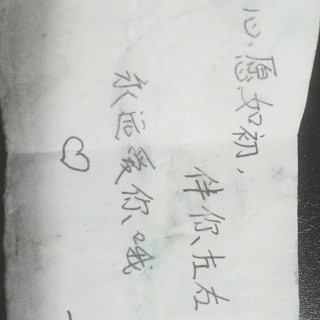 心愿如初，
伴你左右
永远爱你哦
♡